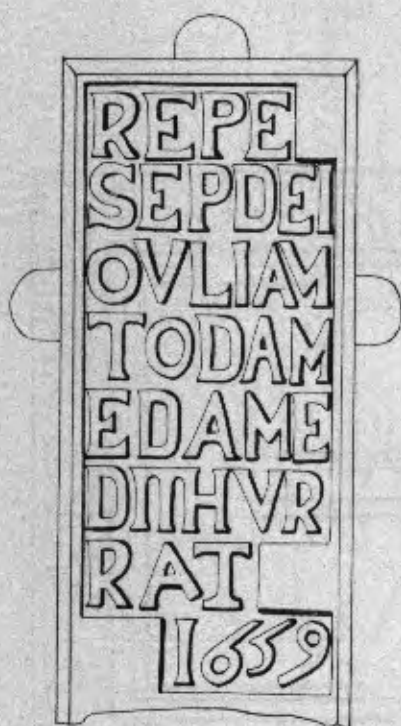 REPE
SEPDEI
OVLIAM
TODAM
EDAME
DITHVR
RAT
1659